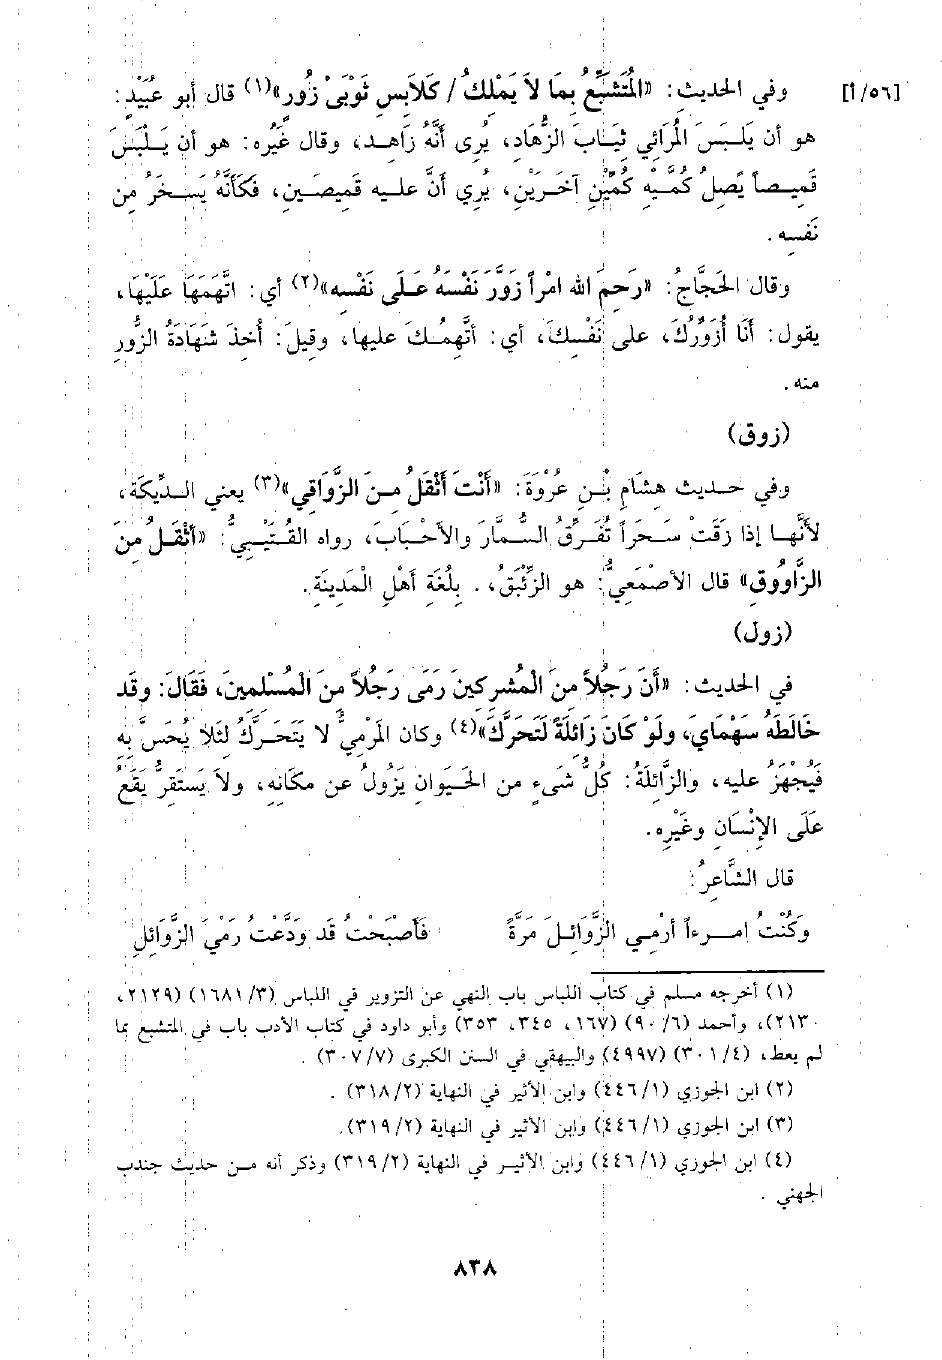 [٥٦/أ] وفي الحديث: «المُتَشَبِّعُ بِمَا لاَ يَمْلِكُ / كَلاَبِسِ ثَوْبَيْ زُورٍ»(١) قال أبو عبيدٍ:
هو أن يَلْبَسَ المُرائي ثِيَابَ الزُّهَادِ، يُرِى أَنَّهُ زَاهِد، وقال غَيْرُه: هو أن يَلْبَسَ
قَمِيصاً يَصِلُ كُمَّيْهِ كُمَّيْنِ آخَرَيْنِ، يُرِي أنَّ عليه قميصَينِ، فكأنَّهُ يَسخَرُ من
نَفسِه.
وقال الحَجاَّجُ: «رَحِمَ الله امْرأً زَوَّرَ نَفْسَهُ عَلَى نَفْسِه»(٢) أي: اتَّهَمَهَا عَلَيْهَا،
يقول: أنَا أُزَوِّرُكَ، على نَفْسِكَ، أي: أتَّهِمُكَ عليها، وقيلَ: أُخِذَ شَهَادَةُ الزُّورِ
منه.
(زوق)
وفي حديث هِشَامِ بْنِ عُرْوَةَ: «أَنْتَ أَثْقَلُ مِنَ الزَّوَاقِي»(٣) يعني الدِّيكَة،
لأنَّها إذا زَقَتْ سَحَراً تُفَرِّقُ السُّمَّارَ والأحْبَابَ، رواه القُتَيْبِيُّ: «أثْقَلُ مِنَ
الزَّاوُوقِ» قال الأصْمَعِيُّ: هو الزِّئْبَقُ، . بِلُغَةِ أهْلِ الْمَدِينَةِ.
(زول)
في الحديث: «أَنَّ رَجُلاً مِنَ الْمُشرِكِينَ رَمَى رَجُلاً مِنَ الْمُسْلِمِينَ، فَقَالَ: وقَد
خَالَطَهُ سَهْمَايَ، ولَوْ كَانَ زَائِلَةً لَتَحَرَّكَ»(٤) وكان المَرْمِيُّ لا يَتَحَرَّكُ لئلا يُحَسَّ بِهِ
فَيُجْهَزُ عليه، والزَّائِلَةُ: كُلُّ شَىءٍ من الحَيوانِ يَزُولُ عن مكانِهِ، ولاَ يَستَقِرُّ يَقَعُ
عَلَى الإنْسَانِ وغَيْرِه.
قال الشَّاعرُ:
وَكُنْتُ امرءاً أرْمِي الزَّوَائِلَ مَرَّةً فَأصْبَحْتُ قد ودَّعْتُ رَمْيَ الزَّوائِلِ
(١) أخرجه مسلم في كتاب اللباس باب النهي عن التزوير في اللباس (١٦٨١/٣) (٢١٢٩،
٢١٣٠)، وأحمد (٩٠/٦) (١٦٧، ٣٤٥، ٣٥٣) وأبو داود في كتاب الأدب باب في المتشبع بما
لم يعط، (٣٠١/٤) (٤٩٩٧) والبيهقي في السنن الكبرى (٣٠٧/٧) .
(٢) ابن الجوزي (٤٤٦/١) وابن الأثير في النهاية (٣١٨/٢) .
(٣) ابن الجوزي (٤٤٦/١) وابن الأثير في النهاية (٣١٩/٢).
(٤) ابن الجوزي (٤٤٦/١) وابن الأثير في النهاية (٣١٩/٢) وذكر أنه من حديث جندب
الجهني .
٨٣٨